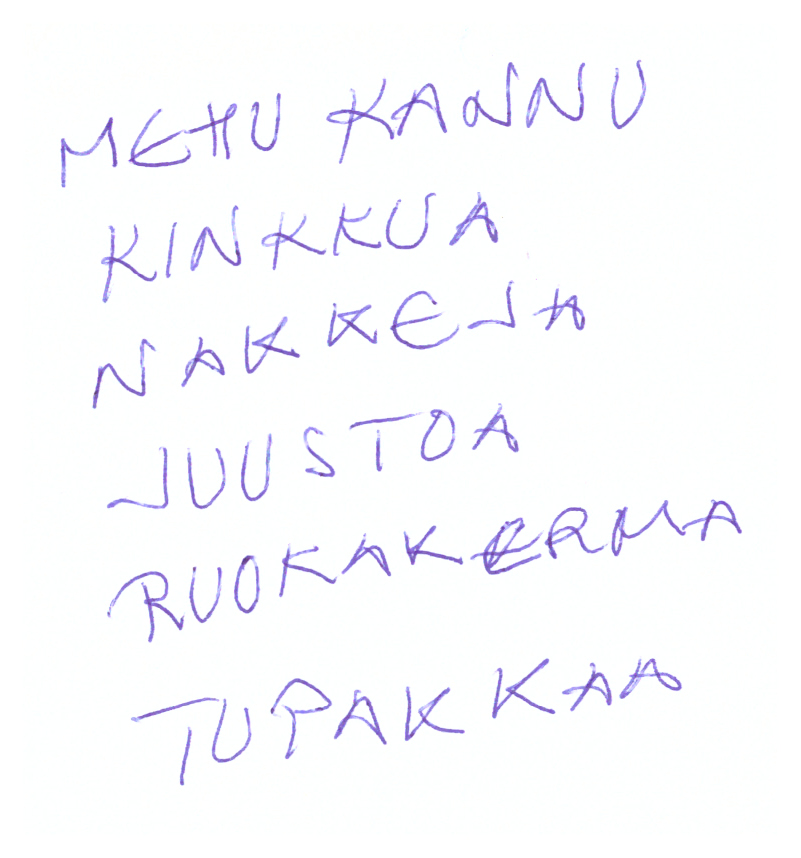 MEHU KANNU
KINKKUA
NAKKEJA
JUUSTOA
RUOKAKERMA
TUPAKKAA